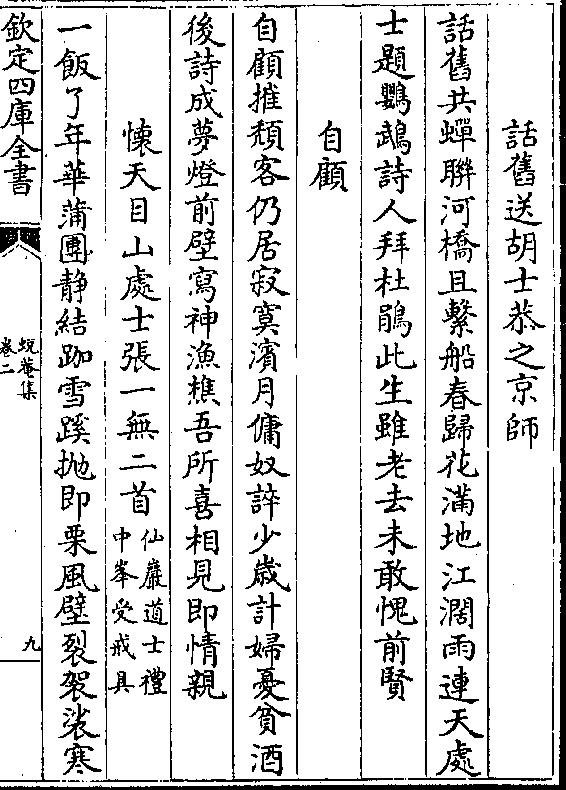 話舊送胡士恭之京師
話舊共蟬聯河橋且繫船春歸花滿地江濶雨連天處
士題鸚鵡詩人拜杜鵑此生雖老去未敢愧前賢
自顧
自顧摧頹客仍居寂寞濱月傭奴誶少歲計婦憂貧酒
後詩成夢燈前壁寫神漁樵吾所喜相見即情親
懐天目山處士張一無二首仙巖道士禮
中峯受戒具
一飯了年華蒲團静結跏雪蹊抛即栗風壁裂袈裟寒
欽定四庫全書
蛻菴集
卷二
九